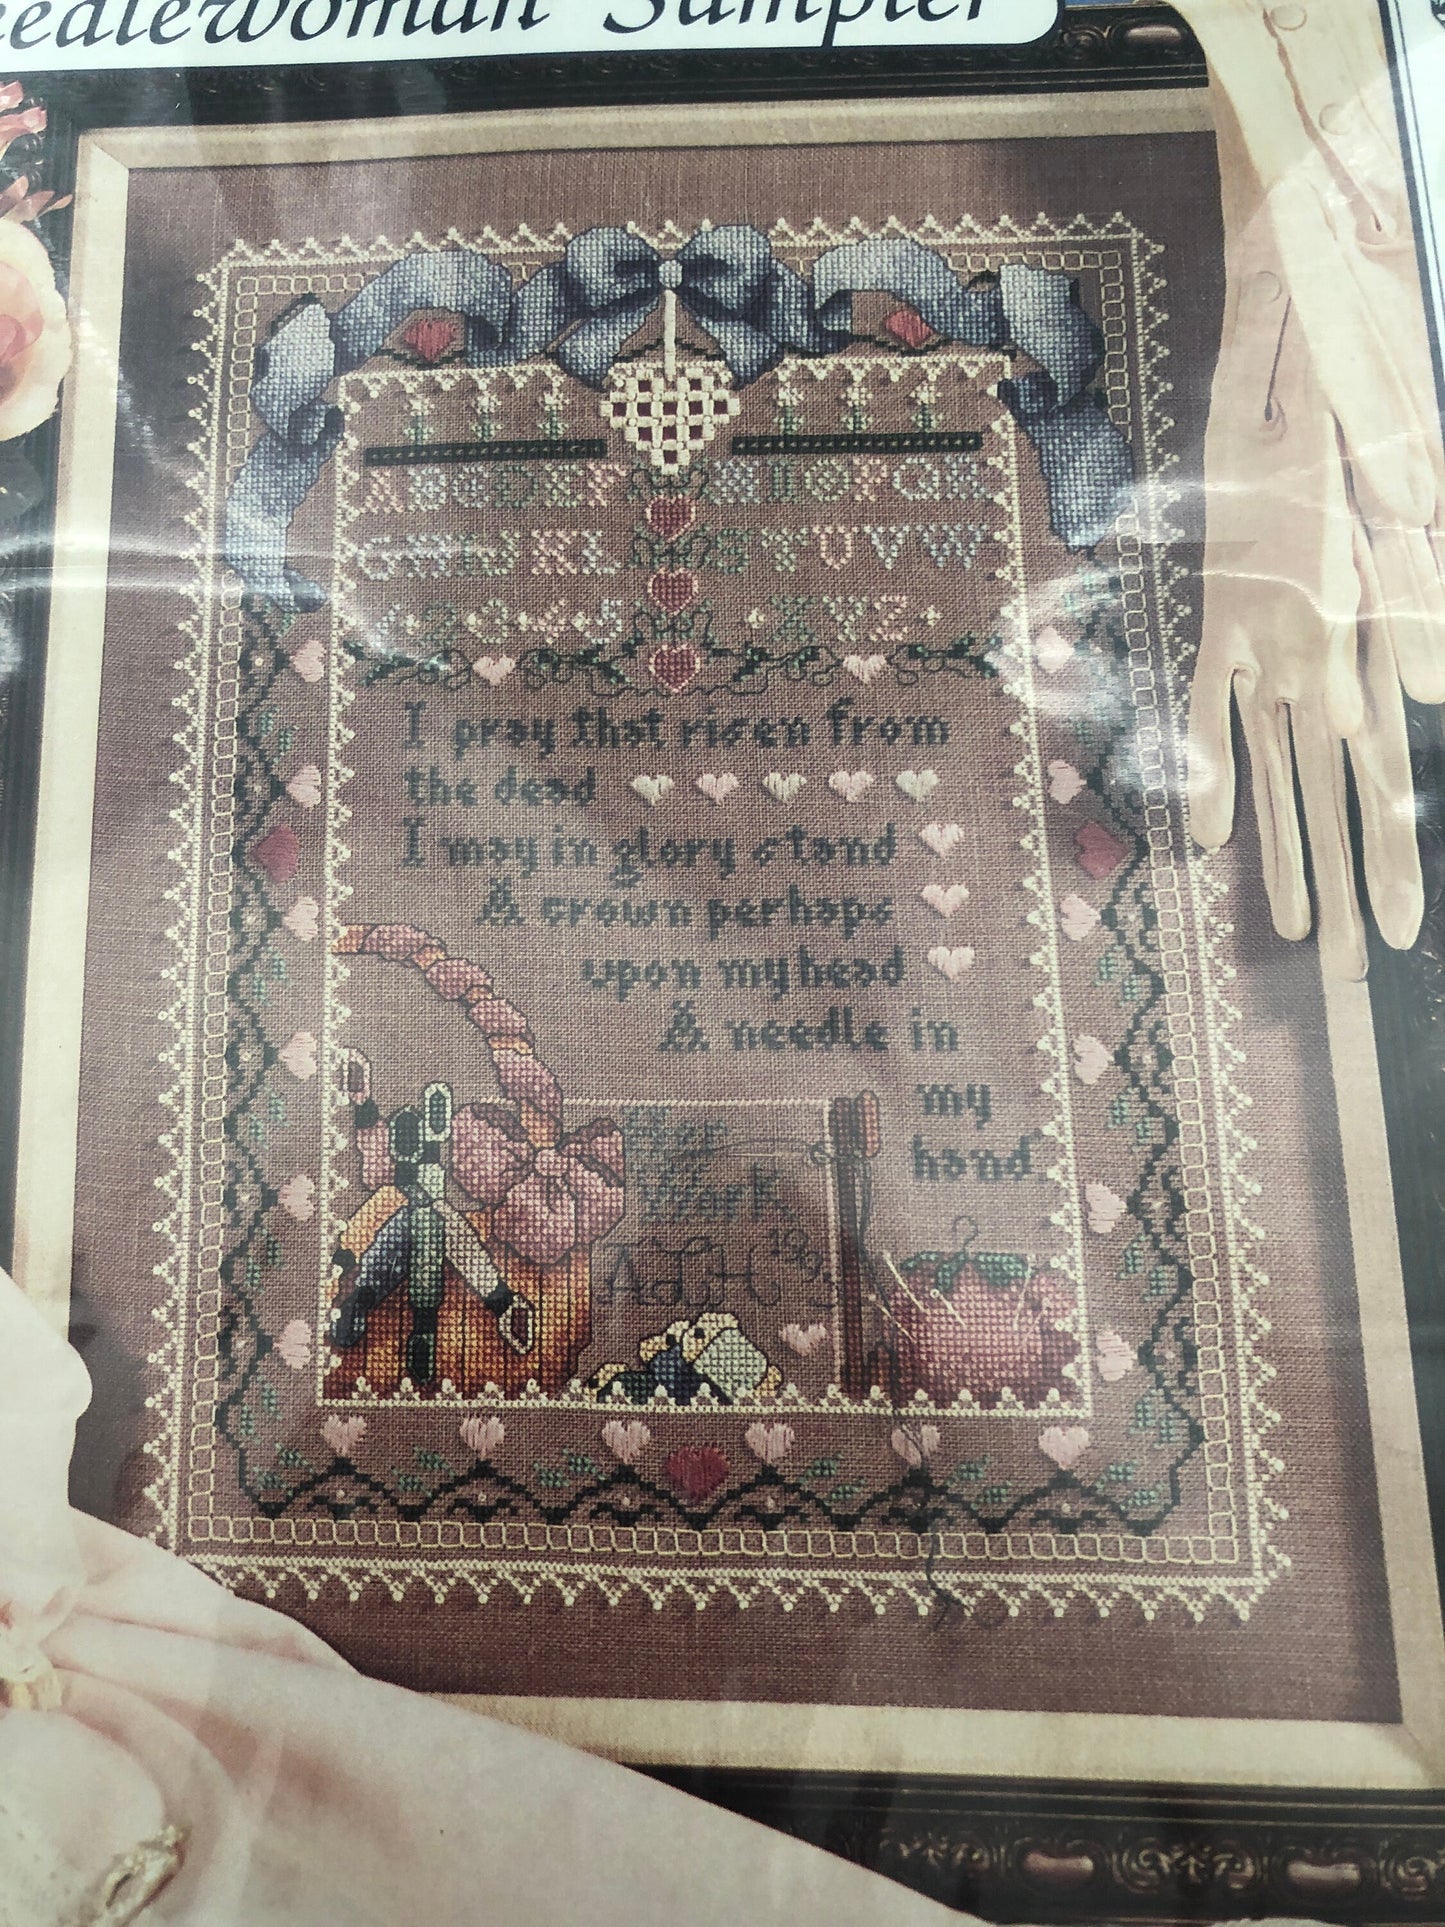 eedlewoman Sampler
A B C D E F M N O P Q R
G H I J K L S T U V W
1 2 3 4 5 X Y Z
I pray that risen from
the dead
I may in glory stand
A crown perhaps
upon my head
A needle in
my
hand
Her
Work
ALH